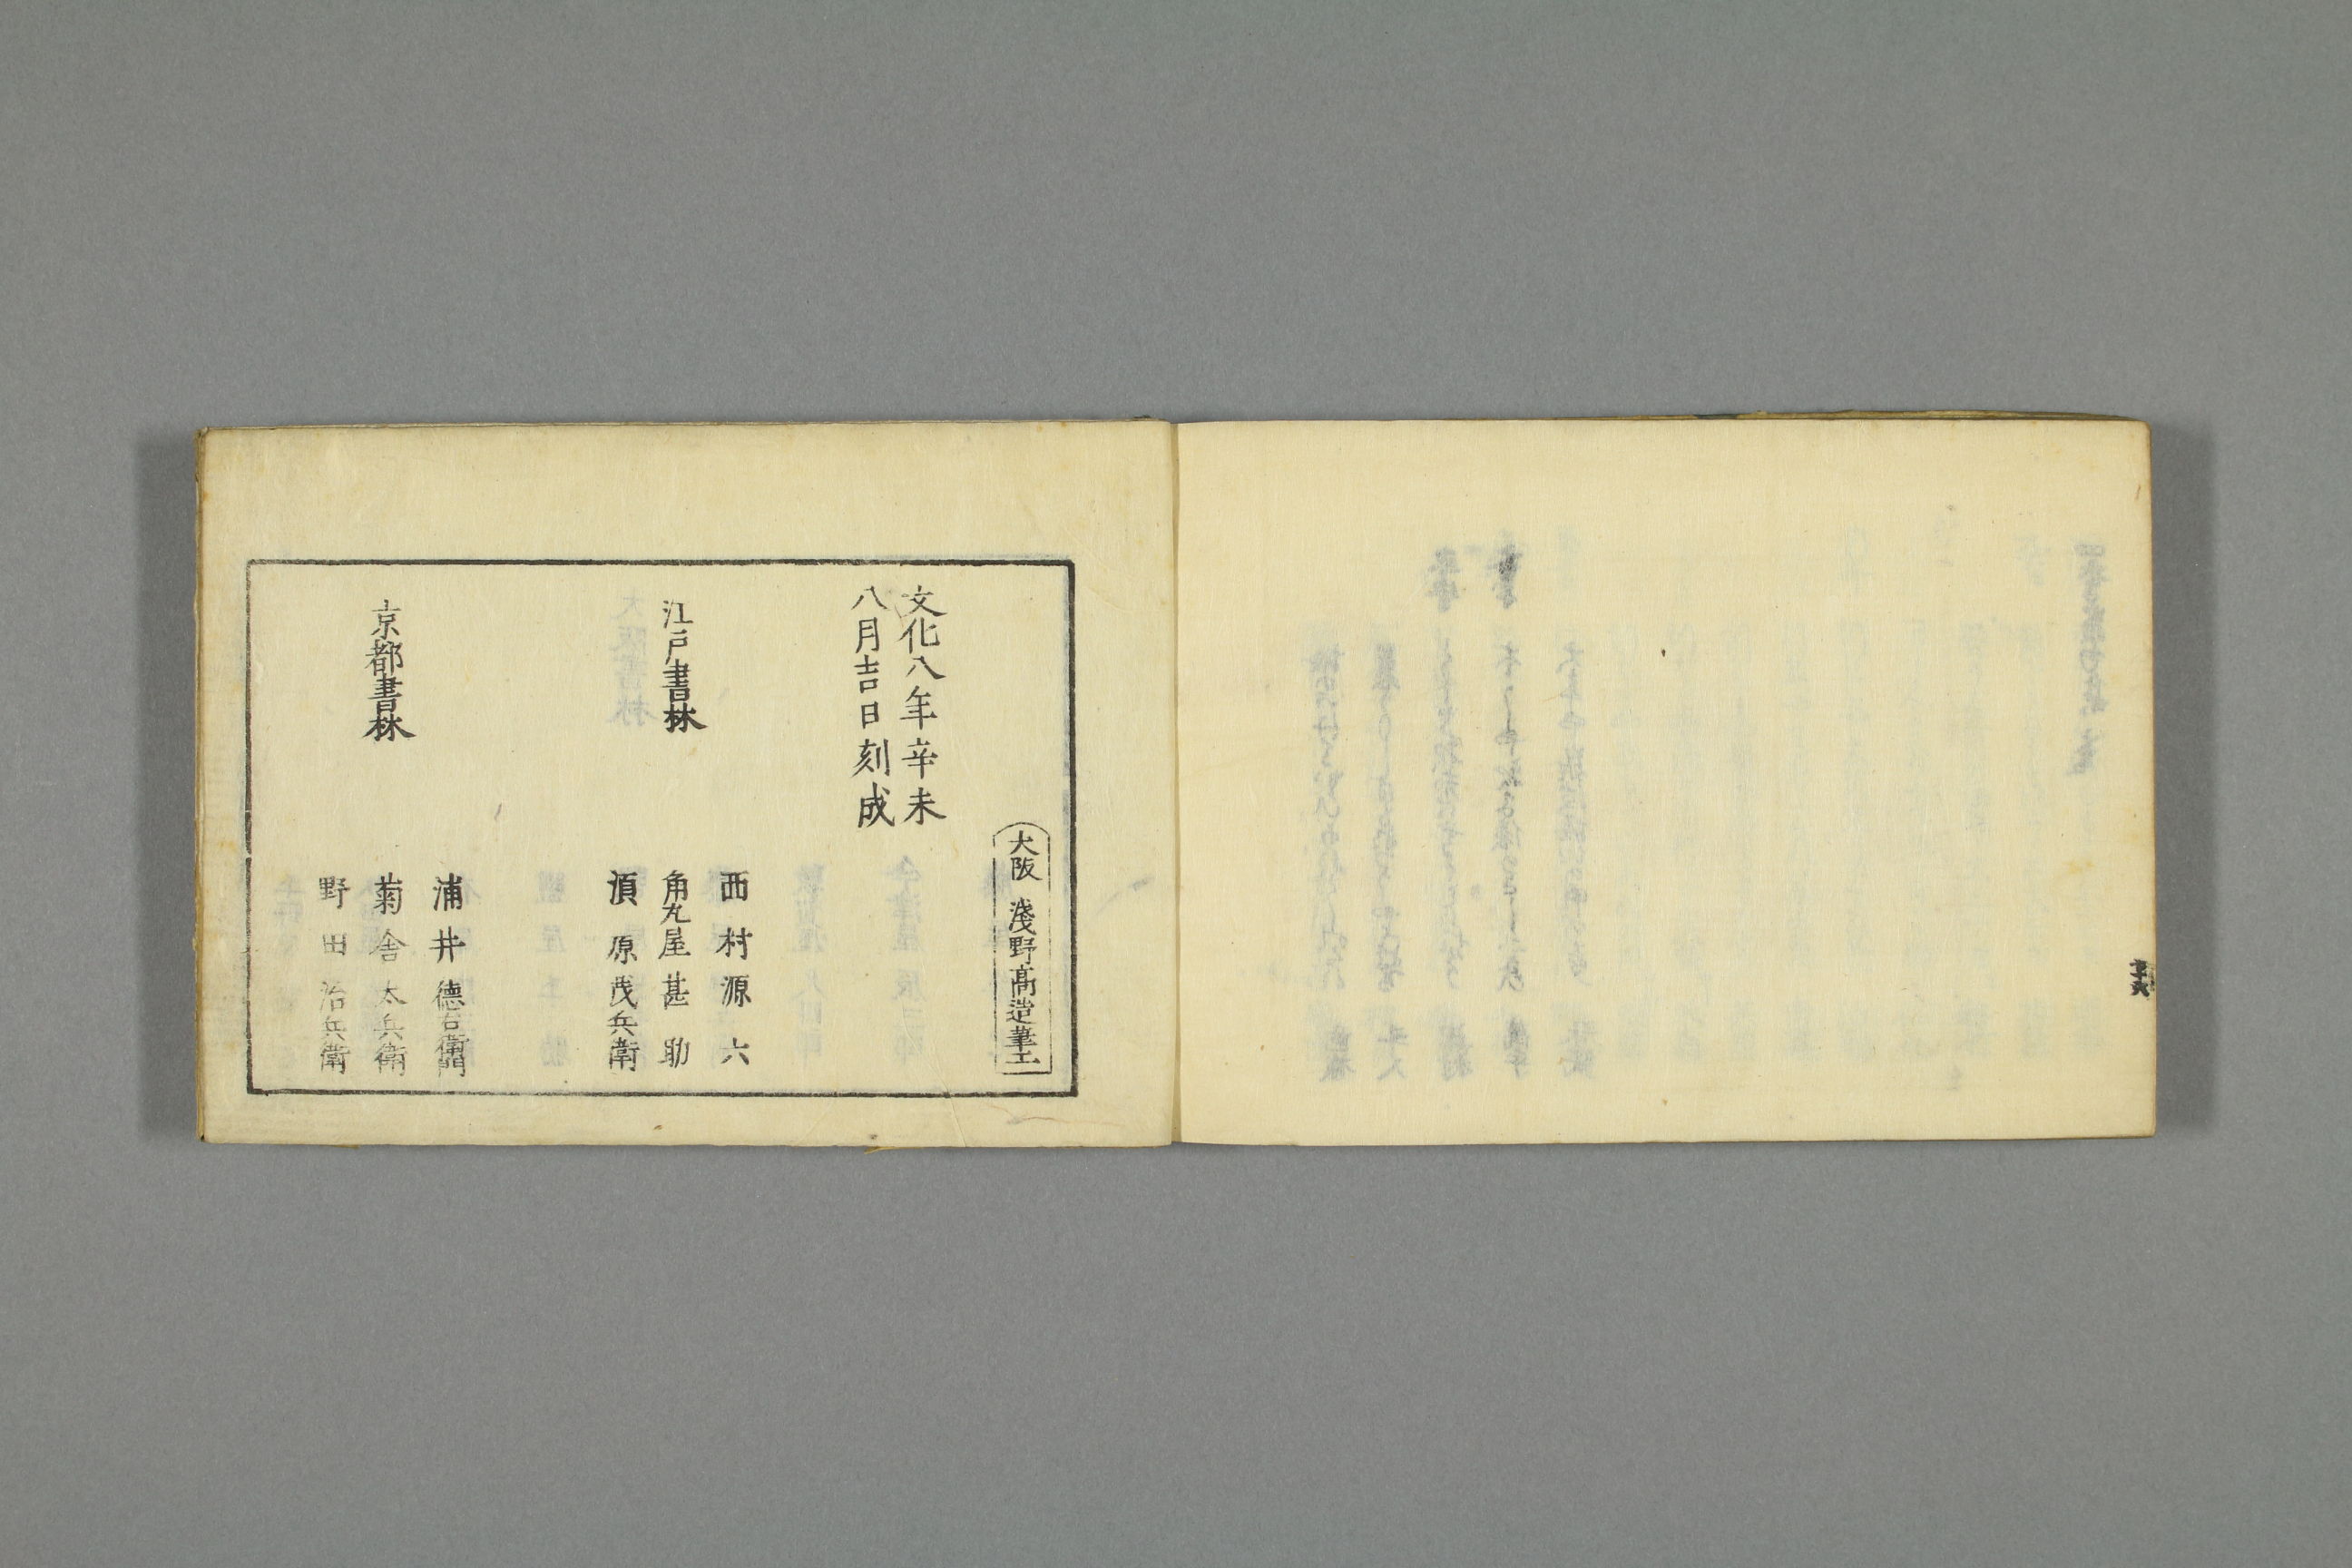 大阪 淺野髙造筆工
文化八年辛未
八月吉日刻成
江戸書林
西村源六
角丸屋甚助
須原茂兵衛
京都書林
浦井徳右衛門
菊舎太兵衛
野田治兵衛